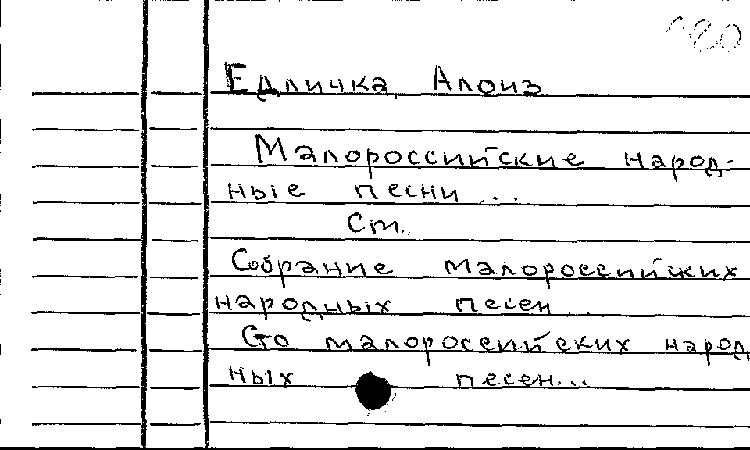 120
Едличка, Алоиз
Малороссийские народ-
ные песни...
См.
Собрание малороссийских
народных песен...
Сто малороссийских народ
ных песен...